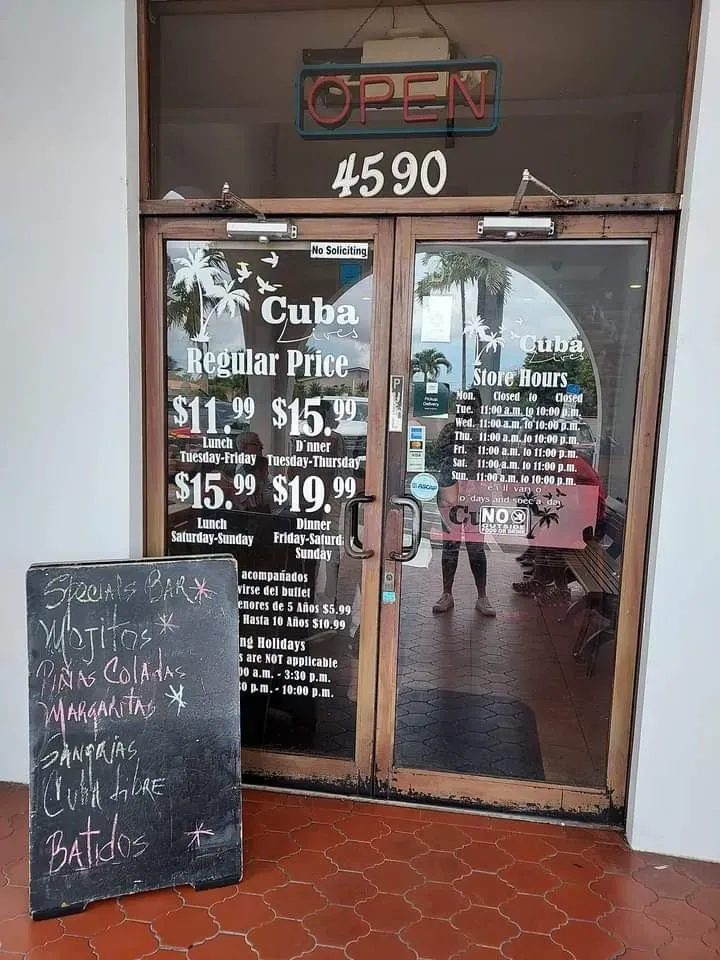 OPEN
4590
No Soliciting
Cuba
Lives
Regular Price
$11.99 $15.99
Lunch
Tuesday-Friday
D nner
Tuesday-Thursday
$15.99 $19.99
Lunch
Saturday-Sunday
Dinner
Friday-Saturd
Sunday
acompañados
virse del buffet
enores de 5 Años $5.99
Hasta 10 Años $10.99
ng Holidays
s are NOT applicable
00 a.m. - 3:30 p.m.
0 p.m. - 10:00 p.m.
PU
Cuba
Lives
Store Hours
Mon. Closed to Closed
Tue. 11:00 a.m. to 10:00 p.m.
Wed. 11:00 a.m. to 10:00 p.m.
Thu. 11:00 a.m. to 10:00 p.m.
Fri. 11:00 a.m. to 11:00 p.m.
Sat. 11:00 a.m. to 11:00 p.m.
Sun. 11:00 a.m. to 10:00 p.m.
Pickup
Delivery
VISA
ASCAP
Cu
NO
OUTSIDE
FOOD OR DRINK
Specials Bar
Mojitos
Piñas Coladas
Margaritas
Sangrias
Cuba Libre
Batidos